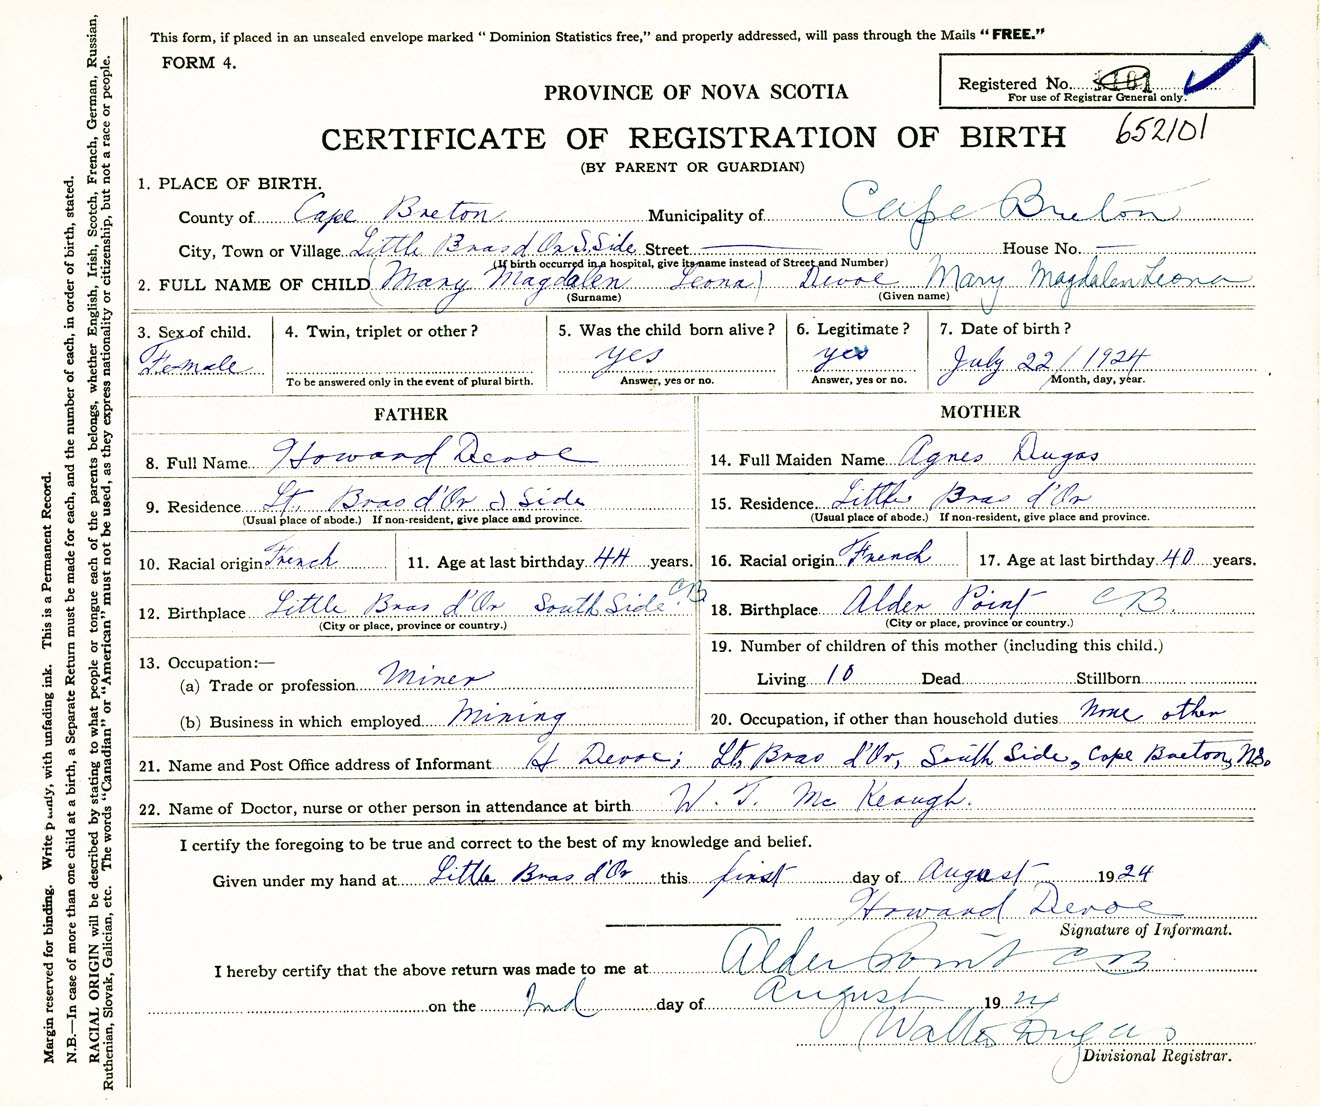 This form, if placed in an unsealed envelope marked "Dominion Statistics free," and properly addressed, will pass through the Mails "FREE."
FORM 4.
Registered No.
For use of Registrar General only.
PROVINCE OF NOVA SCOTIA
652101
CERTIFICATE OF REGISTRATION OF BIRTH
(BY PARENT OR GUARDIAN)
1. PLACE OF BIRTH.
County of Cape Breton Municipality of Cape Breton
City, Town or Village Little Bras d'Or S. Side Street House No.
(If birth occurred in a hospital, give its name instead of Street and Number)
2. FULL NAME OF CHILD (Mary Magdalen Leona) Devoe Mary Magdalen Leona
(Surname) (Given name)
3. Sex of child. 4. Twin, triplet or other? 5. Was the child born alive? 6. Legitimate? 7. Date of birth?
Female yes yes July 22/1924
To be answered only in the event of plural birth. Answer, yes or no. Answer, yes or no. Month, day, year.
FATHER MOTHER
8. Full Name Howard Devoe 14. Full Maiden Name Agnes Dugas
9. Residence Lt. Bras d'Or S Side 15. Residence Little Bras d'Or
(Usual place of abode.) If non-resident, give place and province. (Usual place of abode.) If non-resident, give place and province.
10. Racial origin French 11. Age at last birthday 44 years. 16. Racial origin French 17. Age at last birthday 40 years.
12. Birthplace Little Bras d'Or South Side CB 18. Birthplace Alder Point CB.
(City or place, province or country.) (City or place, province or country.)
19. Number of children of this mother (including this child.)
13. Occupation:—
(a) Trade or profession Miner Living 10 Dead Stillborn
(b) Business in which employed Mining 20. Occupation, if other than household duties None other
21. Name and Post Office address of Informant H Devoe; Lt. Bras d'Or, South Side, Cape Breton, N.S.
22. Name of Doctor, nurse or other person in attendance at birth W. T. McKeough.
I certify the foregoing to be true and correct to the best of my knowledge and belief.
Given under my hand at Little Bras d'Or this first day of August 1924
Howard Devoe
Signature of Informant.
I hereby certify that the above return was made to me at Alder Point CB
on the 2nd day of August 1924
Walter Dugas
Divisional Registrar.
Margin reserved for binding. Write plainly, with unfading ink. This is a Permanent Record.
N.B.—In case of more than one child at a birth, a Separate Return must be made for each, and the number of each, in order of birth, stated.
RACIAL ORIGIN will be described by stating to what people or tongue each of the parents belongs, whether English, Irish, Scotch, French, German, Russian,
Ruthenian, Slovak, Galician, etc. The words "Canadian" or "American" must not be used, as they express nationality or citizenship, but not a race or people.